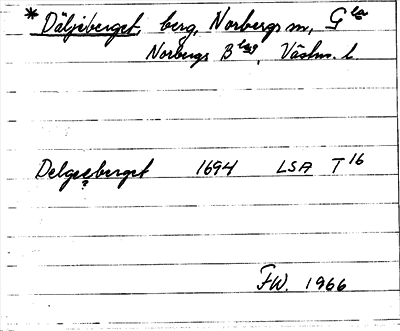 * Däljeberget, berg, Norbergs m, G la
Norbergs Blag, Västm. l.
Delgeeberget 1694 LSA T 16
FW. 1966